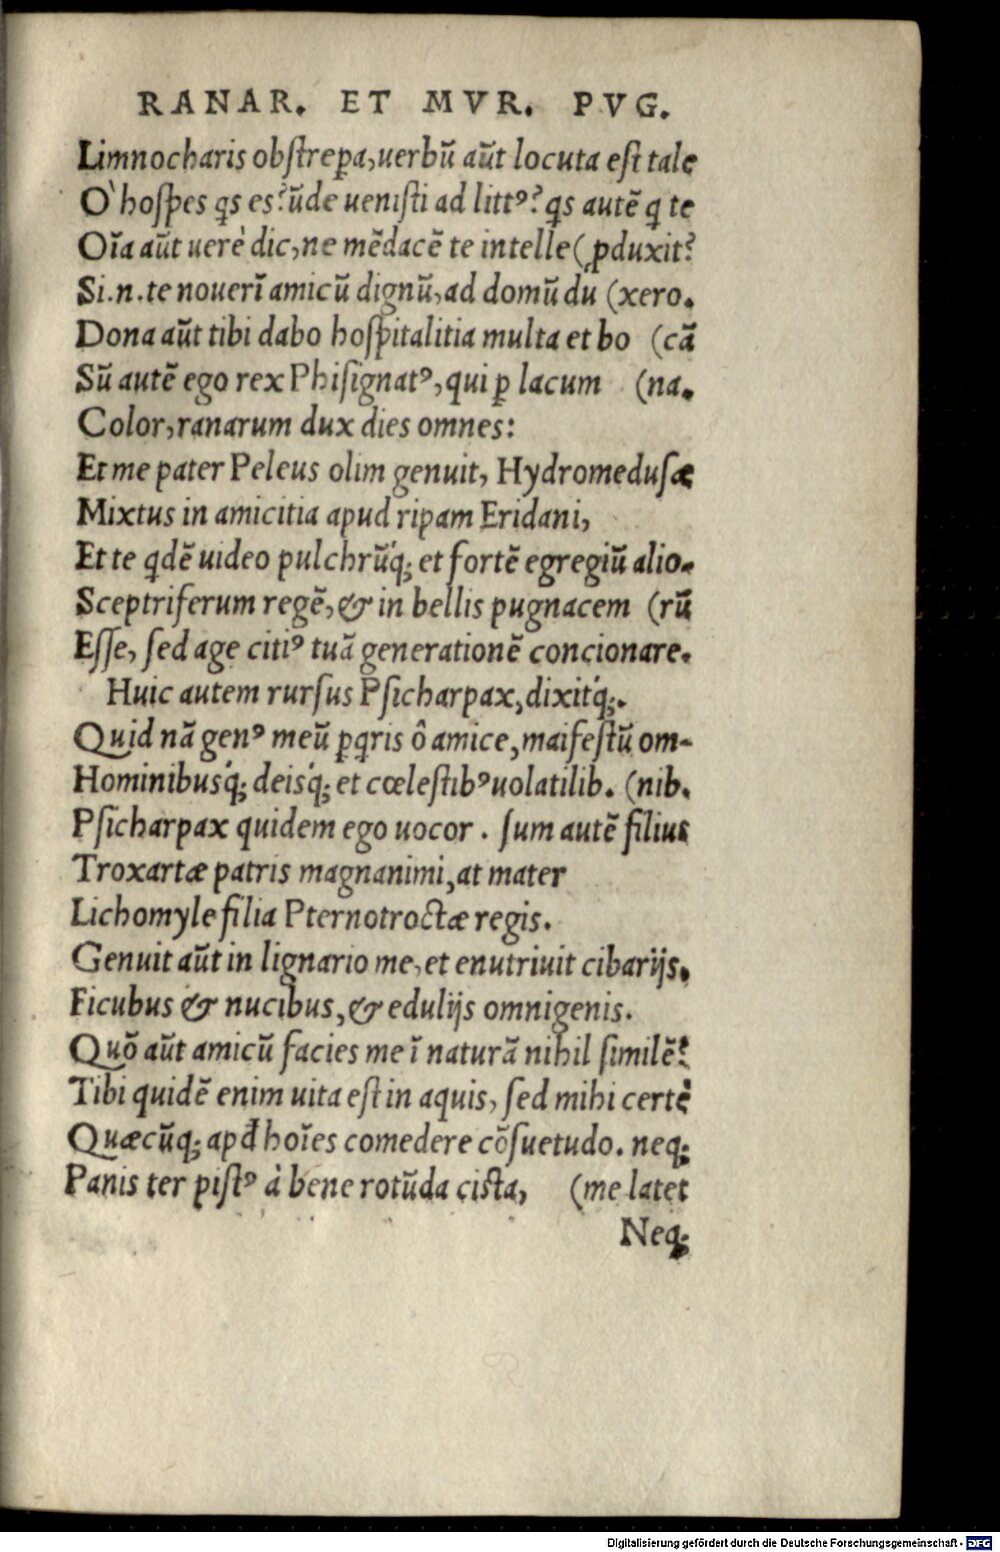 RANAR. ET MVR. PVG.
Limnocharis obſtreꝑa, uerbū aūt locuta eſt tale
O` hoſpes qs es? ūde ueniſti ad littꝰ? qs autē q te
Oīa aūt uerè dic, ne mēdacē te intelle (ꝓduxit?
Si.n.te nouerī amicū dignū, ad domū du (xero.
Dona aūt tibi dabo hoſpitalitia multa et bo (cā
Sū autē ego rex Phiſignatꝰ, qui ꝑ lacum (na.
Color, ranarum dux dies omnes:
Et me pater Peleus olim genuit, Hydromeduſæ
Mixtus in amicitia apud ripam Eridani,
Et te qdē uideo pulchrūq; et fortē egregiū alio-
Sceptriferum regē, & in bellis pugnacem (rū
Eſſe, ſed age citiꝰ tuā generationē concionare.
Huic autem rurſus Pſicharpax, dixitq;.
Quid nā genꝰ meū ꝑqris ô amice, maifeſtū om-
Hominibusq; deisq; et cœleſtibꝰ uolatilib. (nib.
Pſicharpax quidem ego uocor. ſum autē filius
Troxartæ patris magnanimi, at mater
Lichomyle filia Pternotroctæ regis.
Genuit aūt in lignario me, et enutriuit cibarijs,
Ficubus & nucibus, & edulijs omnigenis.
Quō aūt amicū facies me ī naturā nihil ſimilē?
Tibi quidē enim uita eſt in aquis, ſed mihi certè
Quæcūq; apđ hoīes comedere cōſuetudo. neq;
Panis ter piſtꝰ à bene rotūda ciſta, (me latet
Neq;
Digitalisierung gefördert durch die Deutsche Forschungsgemeinschaft - DFG